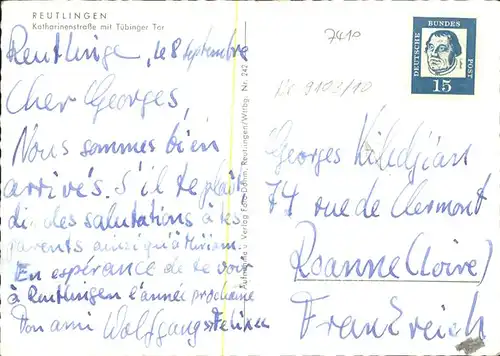 REUTLINGEN
Katharinenstraße mit Tübinger Tor
Reutlinge, le 8 septembre
Cher Georges,
Nous sommes bien
arrivés. S'il te plaît
dis des salutations à tes
parents ainsi qu'à Miriam.
En espérance de te voir
à Reutlingen l'année prochaine
Ton ami Wolfgang
Aufnahme u. Verlag Foto-Dohm, Reutlingen/Wttbg. Nr. 242
7410
DEUTSCHE
BUNDES
POST
15
Georges Kiledjian
74 rue de Clermont
Roanne (Loire)
Frankreich